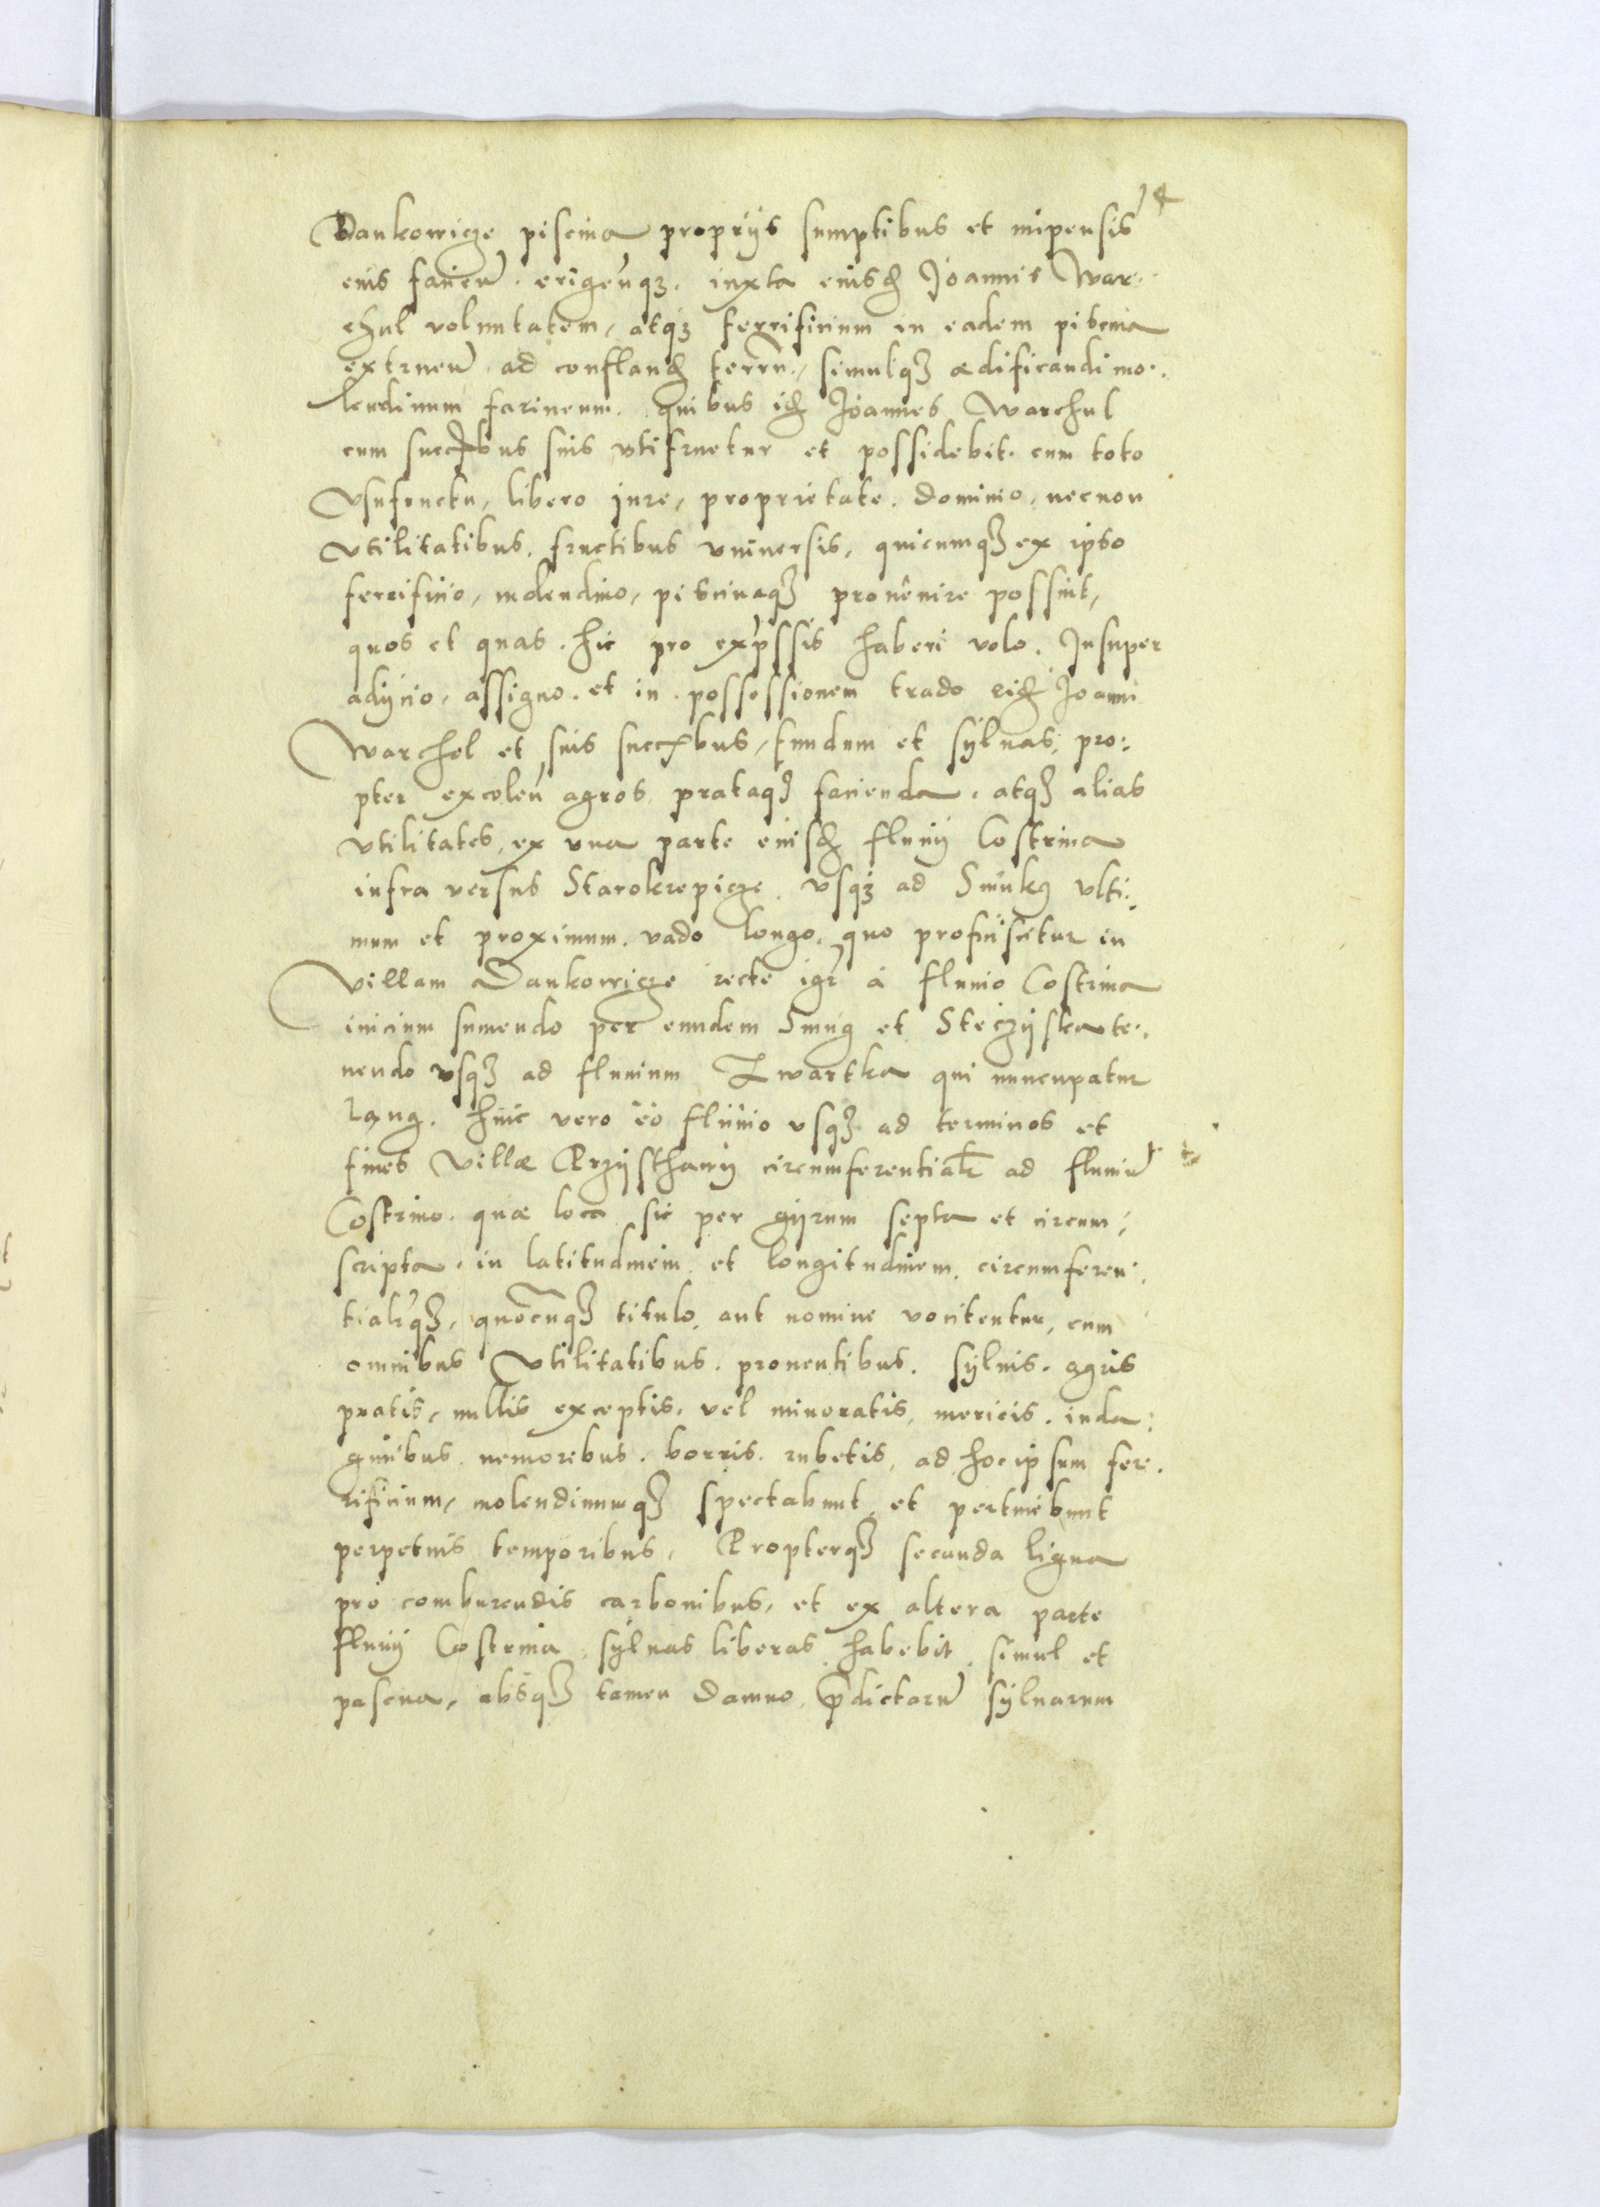 14
Dankowicze piscina proprijs sumptibus et inpensis
eius facieñ. erigeñqꝫ. iuxta eiusd Joannis War-
chul voluntatem, atqꝫ ferrificium in eadem piscina
extrueñ ad confland ferrũ, simulqꝫ ædificandi mo-
lendinum farineum. quibus id Joannes Warchul
cum succbus suis vtifruetur et possidebit. cum toto
Vsufructu, libero jure, proprietate. dominio, necnon
Vtilitatibus. fructibus vniuersis, quicumqꝫ ex ipso
ferrificio, molendino, piscinaqꝫ prouenire possint,
quos et quas. hic pro exp̃ssis haberi volo. Insuper
adijcio, assigno. et in possessionem trado eid Joanni
Warchol et suis succbus, fundum et syluas, pro-
pter excoleñ agros prataqꝫ facienda. atqꝫ alias
vtilitates, ex vna parte eiusd fluuij Costrina
infra versus Starokrepicze vsqꝫ ad Smukg vlti-
mum et proximum. vado longo, quo proficiscitur in
Villam Dankowicze recte igr̃ à fluuio Costrina
inicium sumendo per eundem Smug et Steczyska te-
nendo vsqꝫ ad fluuium Zwartka qui nuncupatur
Lqng. huic vero eo fluuio vsqꝫ ad terminos et
fines Villæ Przysthainy circumferentialr̃ ad fluuiũ
Costrino. quæ loca sic per gyrum septa et circum-
scripta. in latitudinem et longitudinem. circumferen-
tialr̃qꝫ, quocũqꝫ titulo, aut nomine vocitentur, cum
omnibus Vtilitatibus. prouentibus. syluis. agris
pratis, nullis exceptis. vel minoratis, mericis. inda-
ginibus nemoribus. borris. rubetis, ad hoc ipsum fer-
rificium, molendinumqꝫ spectabunt et pertinebunt
perpetuis temporibus. Propterqꝫ secanda ligna
pro comburendis carbonibus, et ex altera parte
fluuij Costrina syluas liberas habebit. simul et
pascua, absqꝫ tamen damno p̃dictarũ syluarum